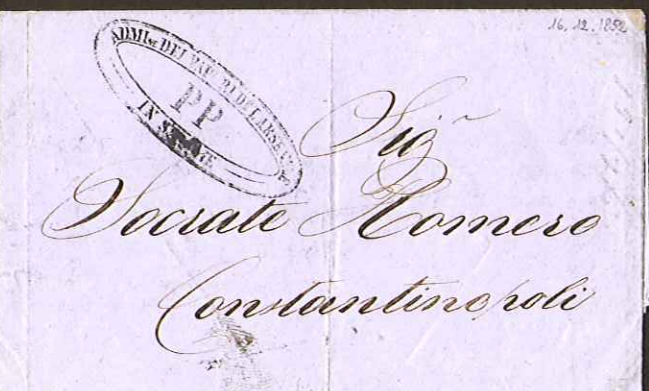 16.12.1852
ADMI.ne DEI VAPORI DELL'ARSENALE
PP
IN SMIRNE
Sig.r
Socrate Homero
Constantinopoli